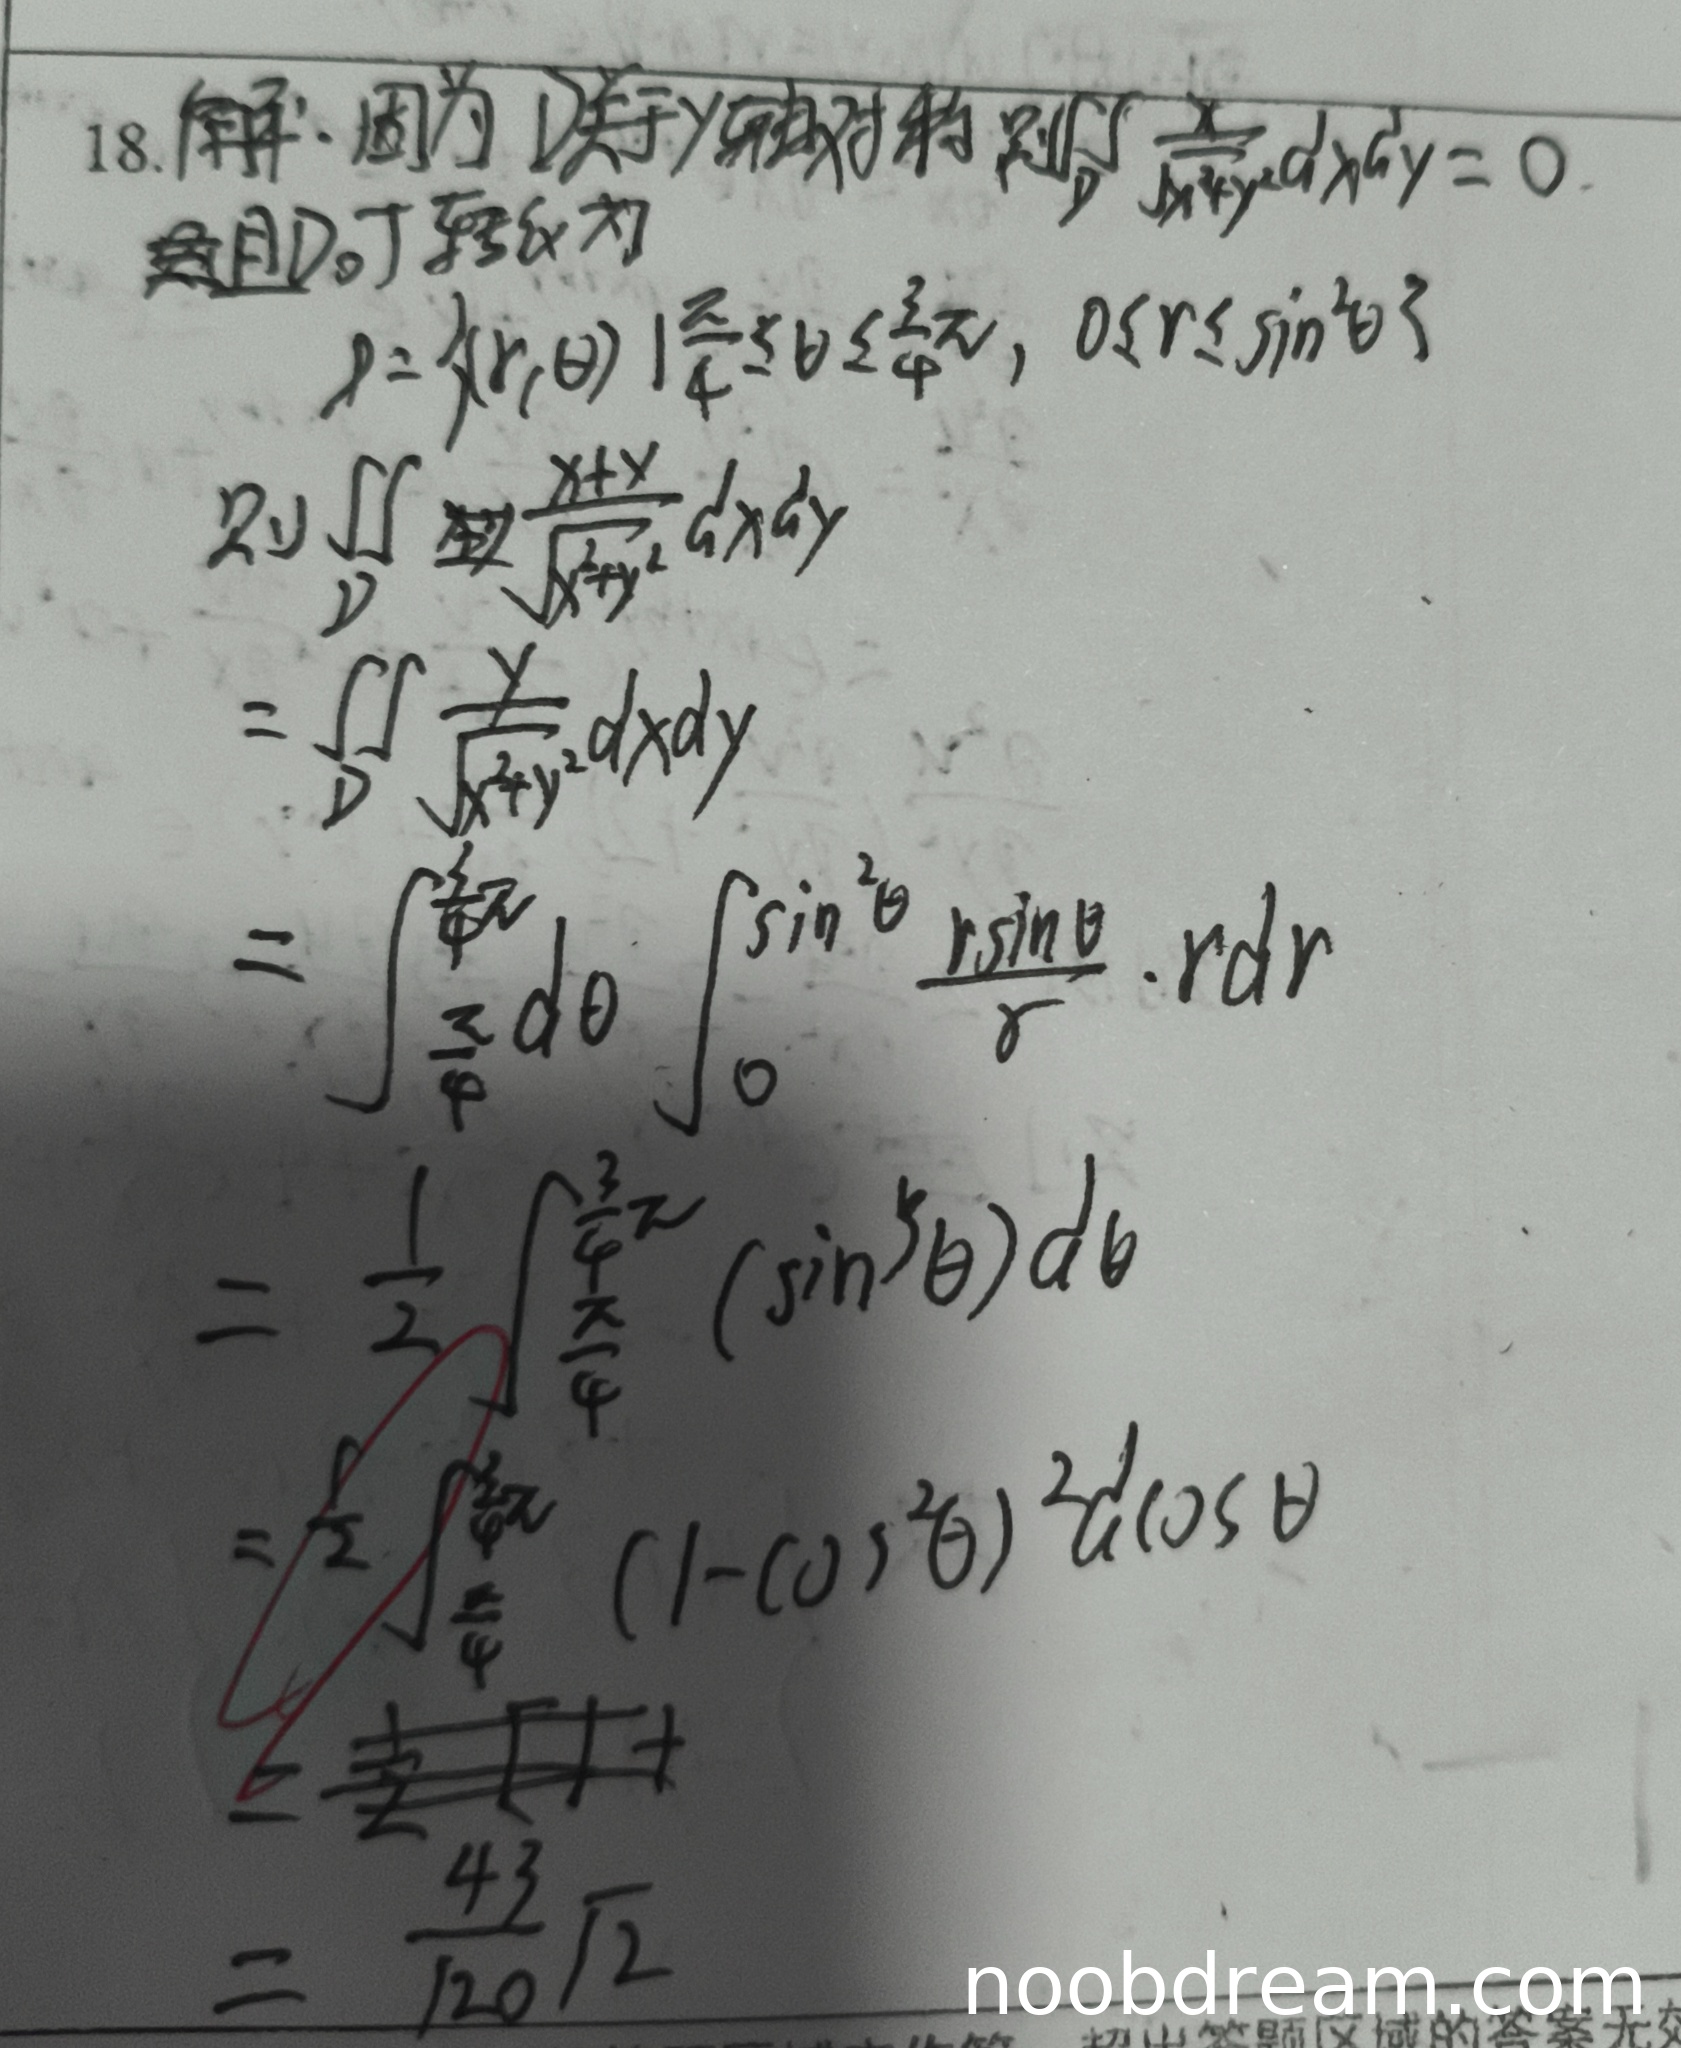 18. 解. 因为 D关于y轴对称 则∬_D x/√(x²+y²) dxdy = 0.
且D。丁转变为
D = {(r, θ) | π/4 ≤ θ ≤ 3/4 π, 0 ≤ r ≤ sin²θ}
则 ∬_D (x+y)/√(x²+y²) dxdy
= ∬_D y/√(x²+y²) dxdy
= ∫_{π/4}^{3/4 π} dθ ∫_0^{sin²θ} (r sinθ)/r · r dr
= 1/2 ∫_{π/4}^{3/4 π} (sin⁵θ) dθ
= 1/2 ∫_{π/4}^{3/4 π} (1-cos²θ)² d cosθ
=
= 43/120 √2
noobdream.com
超出答题区域的答案无效